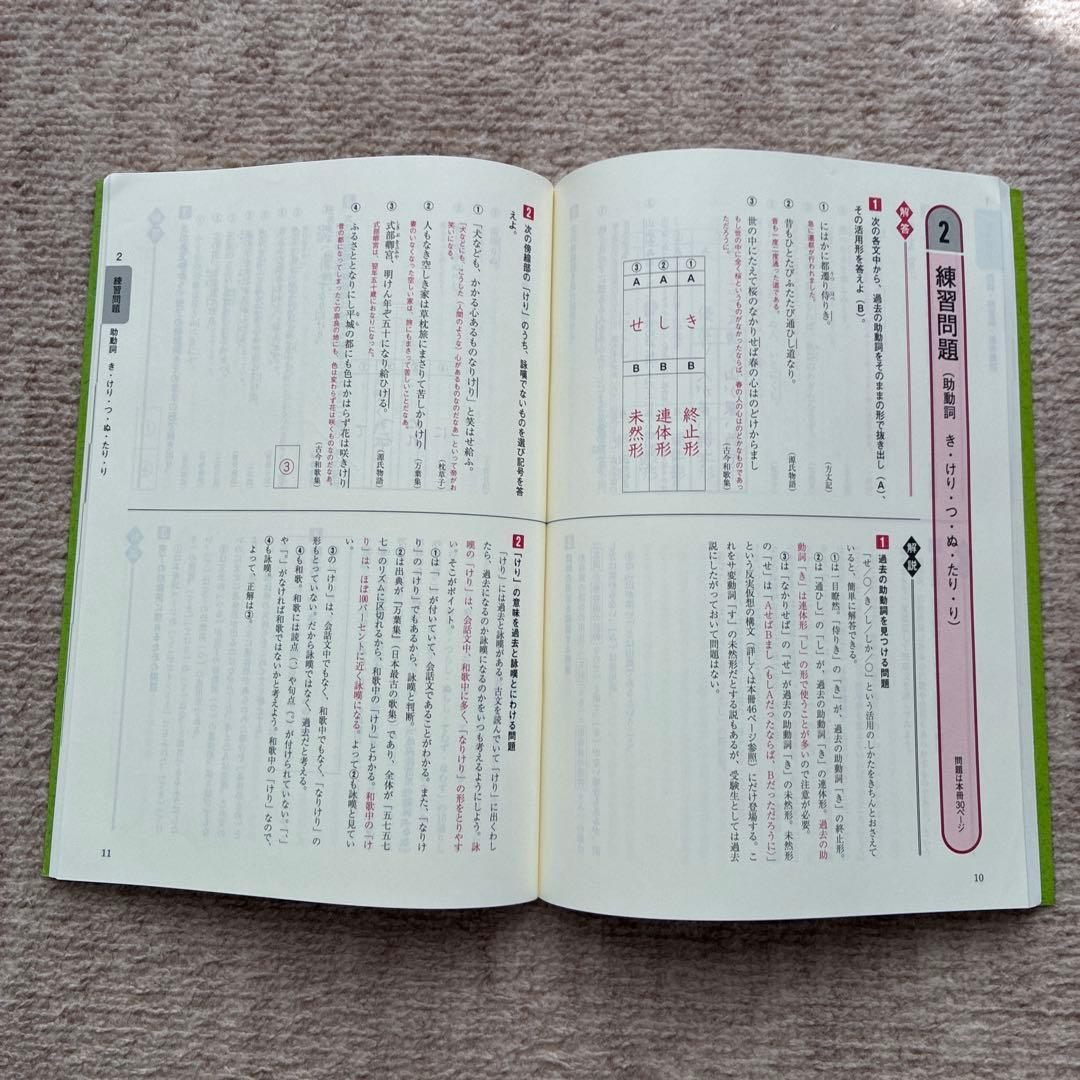 2 練習問題（助動詞　き・けり・つ・ぬ・たり・り）
問題は本冊30ページ
解答
1 次の各文中から、過去の助動詞をそのままの形で抜き出し（A）、
その活用形を答えよ（B）。
① にはかに都遷り侍りき。（方丈記）
急に遷都が行われました。
② 昔もひとたびふたたび通ひし道なり。（源氏物語）
昔も一度二度通った道である。
③ 世の中にたえて桜のなかりせば春の心はのどけからまし（古今和歌集）
もし世の中に全く桜というものがなかったならば、春の人の心はのどかなものであっ
ただろうに。
① A き B 終止形
② A し B 連体形
③ A せ B 未然形
解説
1 過去の助動詞を見つける問題
「せ／○／き／し／しか／○」という活用のしかたをきちんとおさえて
いると、簡単に解答できる。
①は一目瞭然。「侍りき」の「き」が、過去の助動詞「き」の終止形。
②は「通ひし」の「し」が、過去の助動詞「き」の連体形。過去の助
動詞「き」は連体形「し」の形で使うことが多いので注意が必要。
③は「なかりせば」の「せ」が過去の助動詞「き」の未然形。未然形
の「せ」は、「AせばBまし（もしAだったならば、Bだっただろうに）」
という反実仮想の構文（詳しくは本冊46ページ参照）にだけ登場する。こ
れをサ変動詞「す」の未然形だとする説もあるが、受験生としては過去
説にしたがっておいて問題はない。
10
2 次の傍線部の「けり」のうち、詠嘆でないものを選び記号を答
えよ。
① 「犬なども、かかる心あるものなりけり」と笑はせ給ふ。（枕草子）
「犬などにも、こうした（人間のような）心があるものなのだなあ」といって帝がお
笑いになる。
② 人もなき空しき家は草枕旅にまさりて苦しかりけり（万葉集）
妻のいなくなった空しい家は、旅にもまさって苦しいことだなあ。
③ 式部卿宮、明けん年ぞ五十になり給ひける。（源氏物語）
式部卿宮は、翌年五十歳におなりになった。
④ ふるさととなりにし平城の都にも色はかはらず花は咲きけり（古今和歌集）
昔の都になってしまったこの奈良の地にも、色は変わらず花は咲くものなのだなあ。
③
2 「けり」の意味を過去と詠嘆とにわける問題
「けり」には過去と詠嘆がある。古文を読んでいて「けり」に出くわし
たら、過去になるのか詠嘆になるのかをいつも考えるようにしよう。詠
嘆の「けり」は、会話文中、和歌中に多く、「なりけり」の形をとりやす
い。そこがポイント。
①は「」が付いていて、会話文であることがわかる。また、「なりけ
り」の「けり」でもあるから、詠嘆と判断。
②は出典が『万葉集』（日本最古の歌集）であり、全体が「五七五七
七」のリズムに区切れるから、和歌中の「けり」とわかる。和歌中の「け
り」は、ほぼ100パーセントに近く詠嘆になる。よって②も詠嘆と見てい
い。
③の「けり」は、会話文中でもなく、和歌中でもなく、「なりけり」の
形もとっていない。だから詠嘆ではなく、過去だと考える。
④も和歌。和歌には読点（、）や句点（。）が付けられていない。「、」
や「。」がなければ和歌ではないかと考えよう。和歌中の「けり」なので、
④も詠嘆。
よって、正解は③。
2 練習問題 助動詞 き・けり・つ・ぬ・たり・り
11